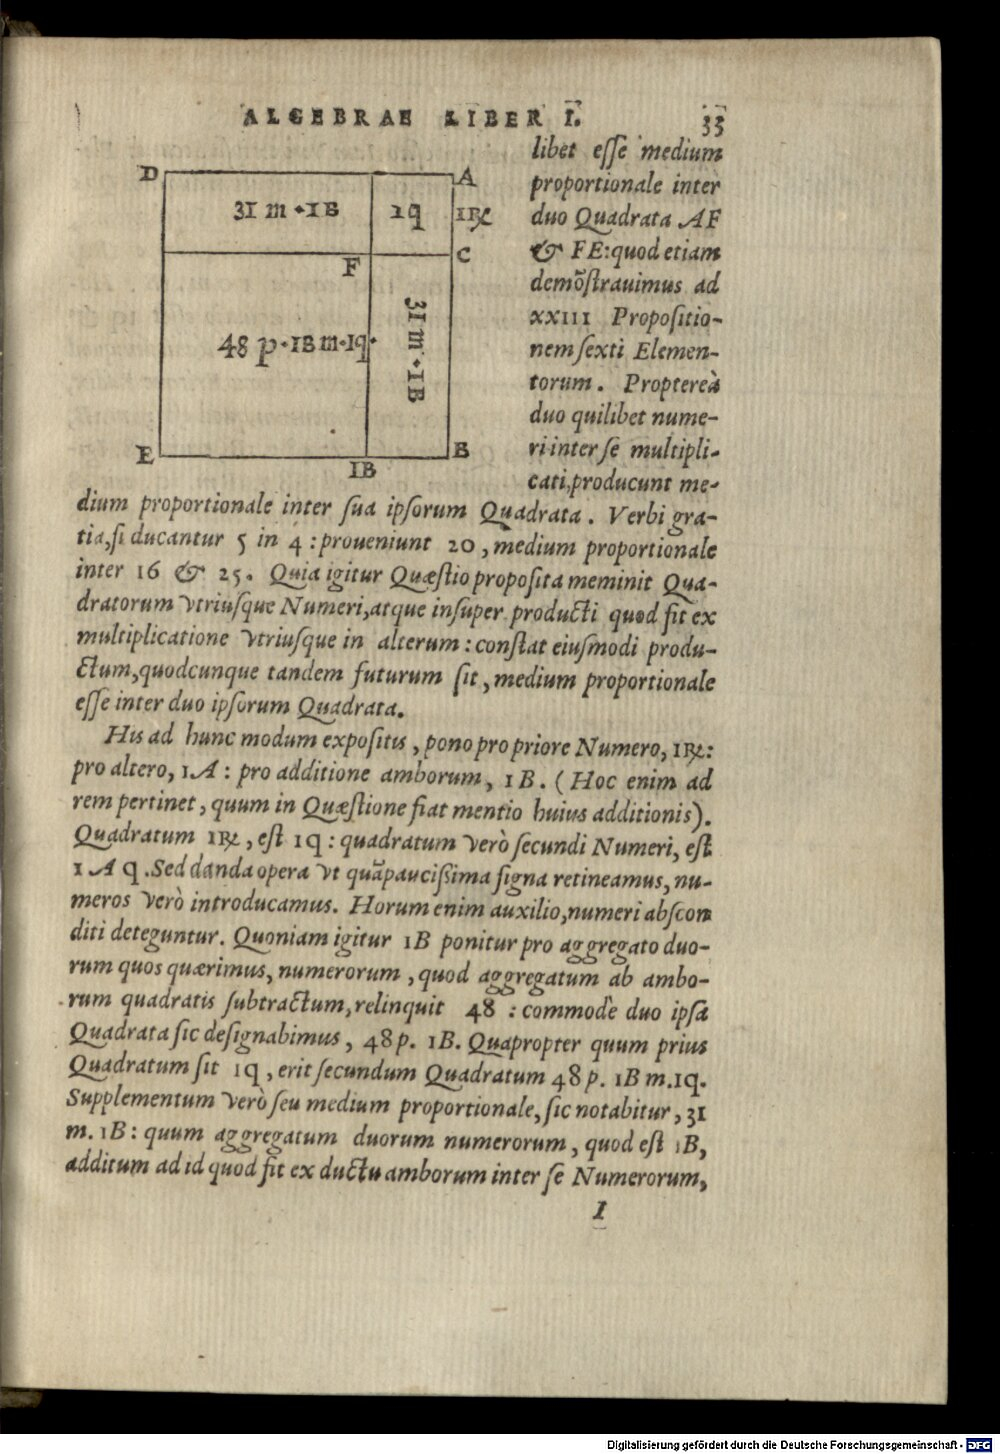 ALGEBRAE LIBER I. 33
D
A
31 m · 1B
1q
1R℞
C
F
48 p · 1B m · 1q ·
31 m · 1B
E
1B
B
libet esse medium
proportionale inter
duo Quadrata AF
& FE: quod etiam
demõstrauimus ad
XXIII Propositio-
nem sexti Elemen-
torum. Propterea
duo quilibet nume-
ri inter se multipli-
cati, producunt me-
dium proportionale inter sua ipsorum Quadrata. Verbi gra-
tia, si ducantur 5 in 4 : proueniunt 20, medium proportionale
inter 16 & 25. Quia igitur Quæstio proposita meminit Qua-
dratorum vtriusque Numeri, atque insuper producti quod fit ex
multiplicatione vtriusque in alterum : constat eiusmodi produ-
ctum, quodcunque tandem futurum sit, medium proportionale
esse inter duo ipsorum Quadrata.
His ad hunc modum expositis, pono pro priore Numero, 1℞:
pro altero, 1A : pro additione amborum, 1B. (Hoc enim ad
rem pertinet, quum in Quæstione fiat mentio huius additionis).
Quadratum 1℞, est 1q : quadratum verò secundi Numeri, est
1 A q. Sed danda opera vt quãpaucissima signa retineamus, nu-
meros verò introducamus. Horum enim auxilio, numeri abscon
diti deteguntur. Quoniam igitur 1B ponitur pro aggregato duo-
rum quos quærimus, numerorum, quod aggregatum ab ambo-
rum quadratis subtractum, relinquit 48 : commodè duo ipsa
Quadrata sic designabimus, 48 p. 1B. Quapropter quum prius
Quadratum sit 1q, erit secundum Quadratum 48 p. 1B m. 1q.
Supplementum verò seu medium proportionale, sic notabitur, 31
m. 1B : quum aggregatum duorum numerorum, quod est 1B,
additum ad id quod fit ex ductu amborum inter se Numerorum,
I
Digitalisierung gefördert durch die Deutsche Forschungsgemeinschaft - DFG